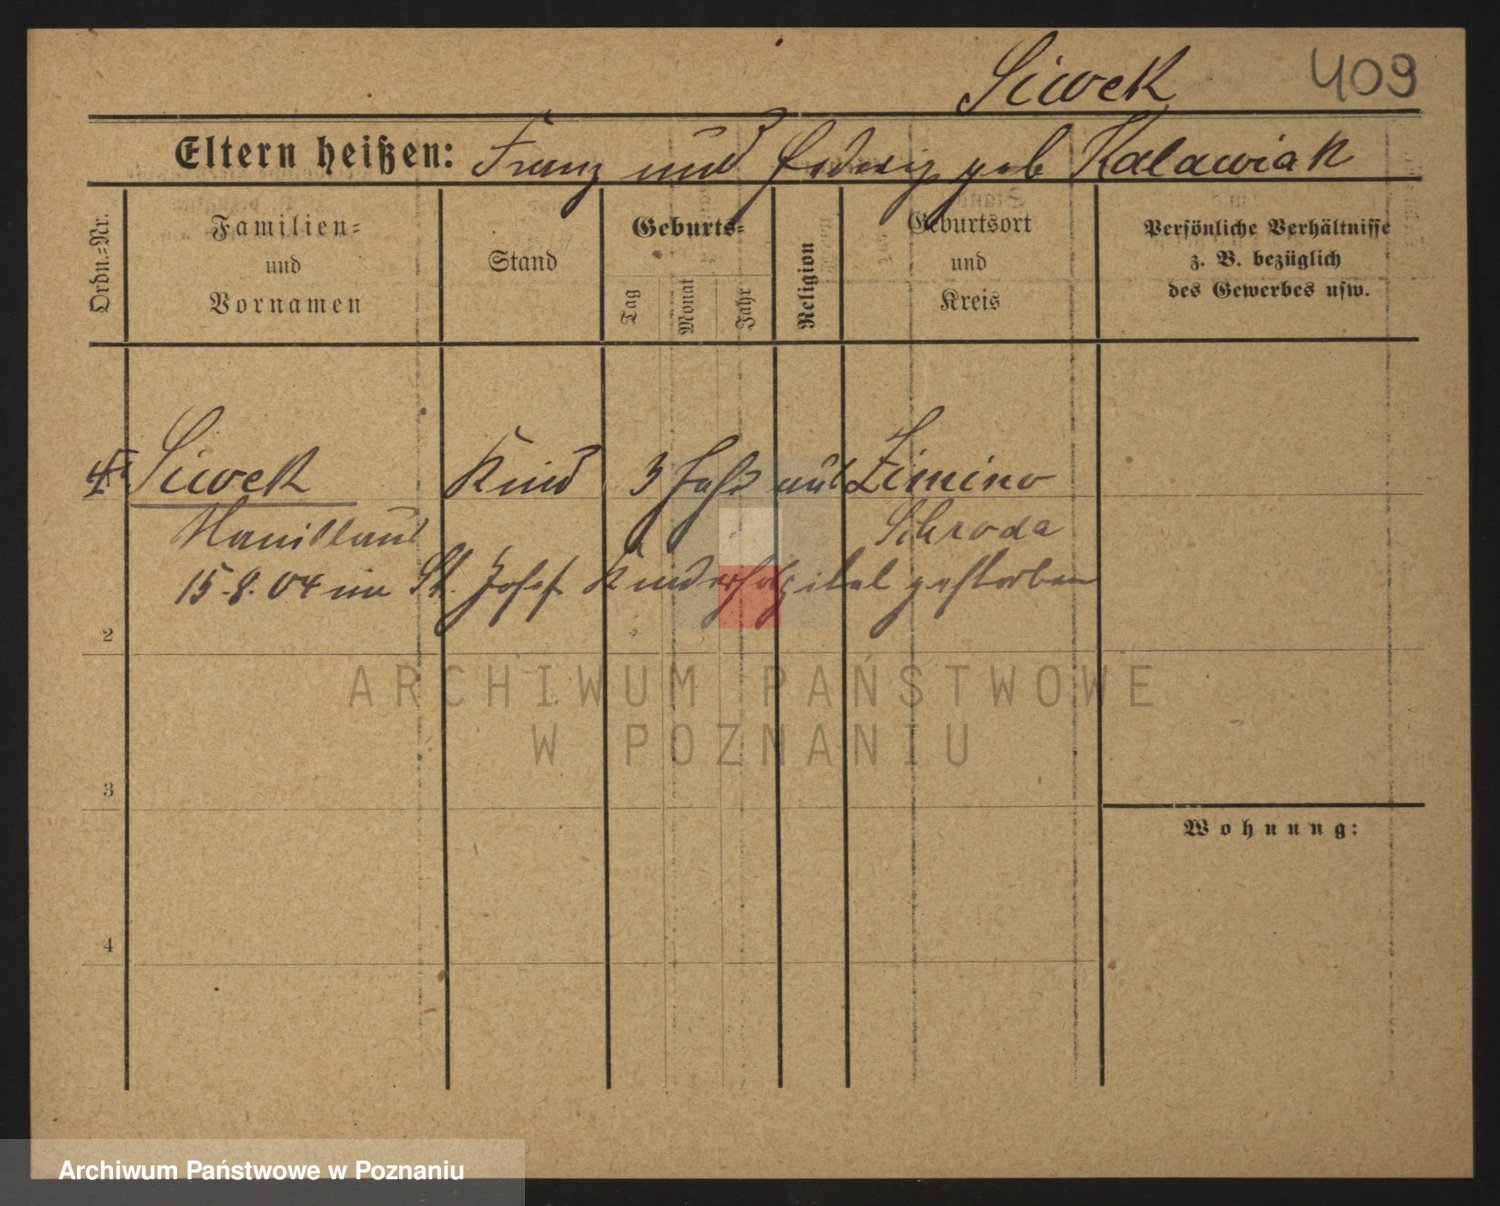 Siwek 409
Eltern heißen: Franz und Hedwig geb Kalawiak
Ordn.=Nr.
Familien=
und
Vornamen
Stand
Geburts=
Tag
Monat
Jahr
Religion
Geburtsort
und
Kreis
Persönliche Verhältnisse
z. B. bezüglich
des Gewerbes usw.
Siwek Kind 3 Jahr alt Zimino
Stanislaus Schroda
15.8.04 im St. Josef Kinderhospital gestorben
2
3
4
Wohnung:
ARCHIWUM PAŃSTWOWE
W POZNANIU
Archiwum Państwowe w Poznaniu